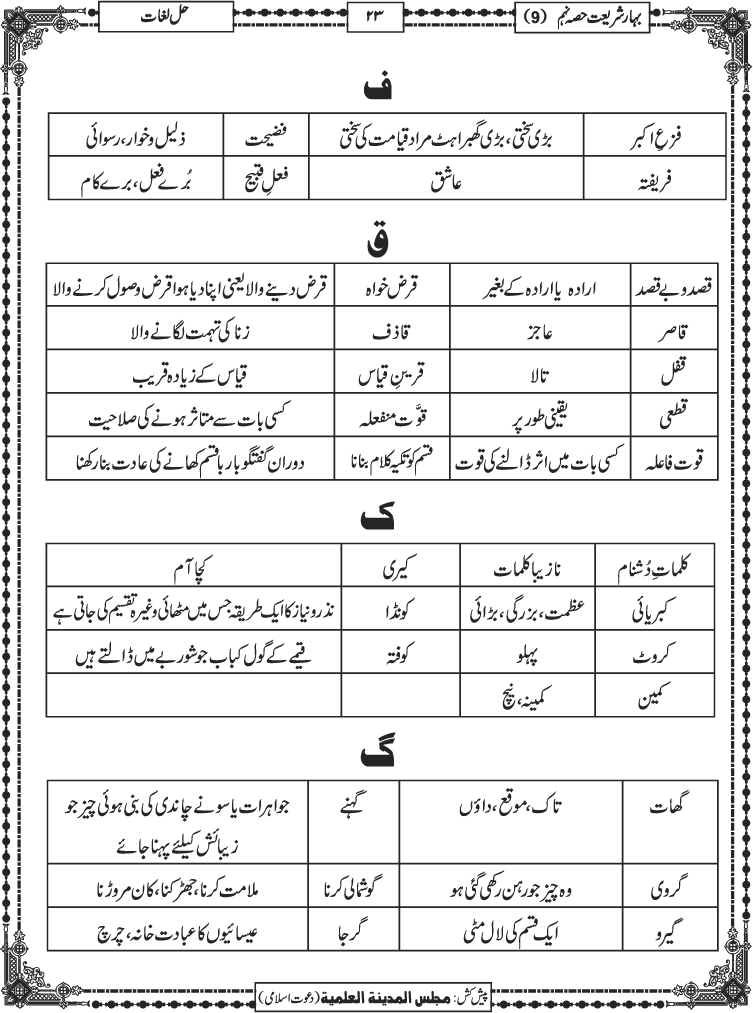 بہار شریعت حصہ نہم (9)
۲۳
حل لغات
ف
فزعِ اکبر	بڑی سختی، بڑی گھبراہٹ مراد قیامت کی سختی	فضیحت	ذلیل وخوار، رسوائی
فریفتہ	عاشق	فعلِ قبیح	بُرے فعل، برے کام
ق
قصد و بے قصد	ارادہ یا ارادہ کے بغیر	قرض خواہ	قرض دینے والا یعنی اپنا دیا ہوا قرض وصول کرنے والا
قاصر	عاجز	قاذف	زنا کی تہمت لگانے والا
قفل	تالا	قرینِ قیاس	قیاس کے زیادہ قریب
قطعی	یقینی طور پر	قوَّت منفعلہ	کسی بات سے متاثر ہونے کی صلاحیت
قوت فاعلہ	کسی بات میں اثر ڈالنے کی قوت	قسم کو تکیہ کلام بنانا	دوران گفتگو بار بار قسم کھانے کی عادت بنا رکھنا
ک
کلماتِ دُشنام	نازیبا کلمات	کیری	کچا آم
کبریائی	عظمت، بزرگی، بڑائی	کونڈا	نذرو نیاز کا ایک طریقہ جس میں مٹھائی وغیرہ تقسیم کی جاتی ہے
کروٹ	پہلو	کوفتہ	قیمے کے گول کباب جو شوربے میں ڈالتے ہیں
کمین	کمینہ، نیچ
گ
گھات	تاک، موقع، داؤں	گہنے	جواہرات یا سونے چاندی کی بنی ہوئی چیز جو
زیبائش کیلئے پہنا جائے
گروی	وہ چیز جو رہن رکھی گئی ہو	گوشمالی کرنا	ملامت کرنا، جھڑکنا، کان مروڑنا
گیرو	ایک قسم کی لال مٹی	گرجا	عیسائیوں کا عبادت خانہ، چرچ
پیش کش: مجلس المدینۃ العلمیۃ (دعوت اسلامی)